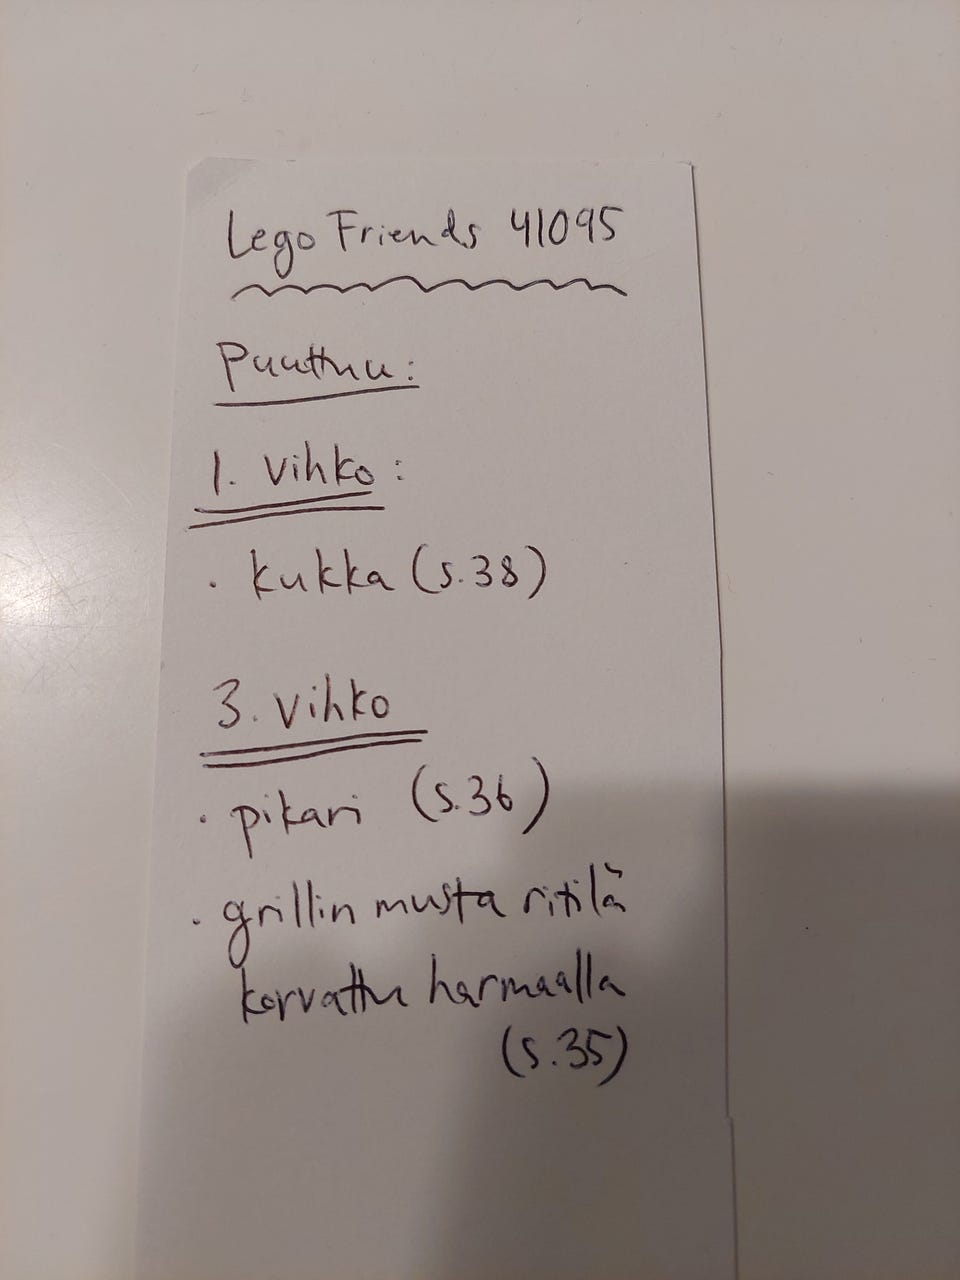 Lego Friends 41095
Puuttuu:
1. vihko:
· kukka (s.38)
3. vihko
· pikari (s.36)
· grillin musta ritilä
korvattu harmaalla
(s.35)